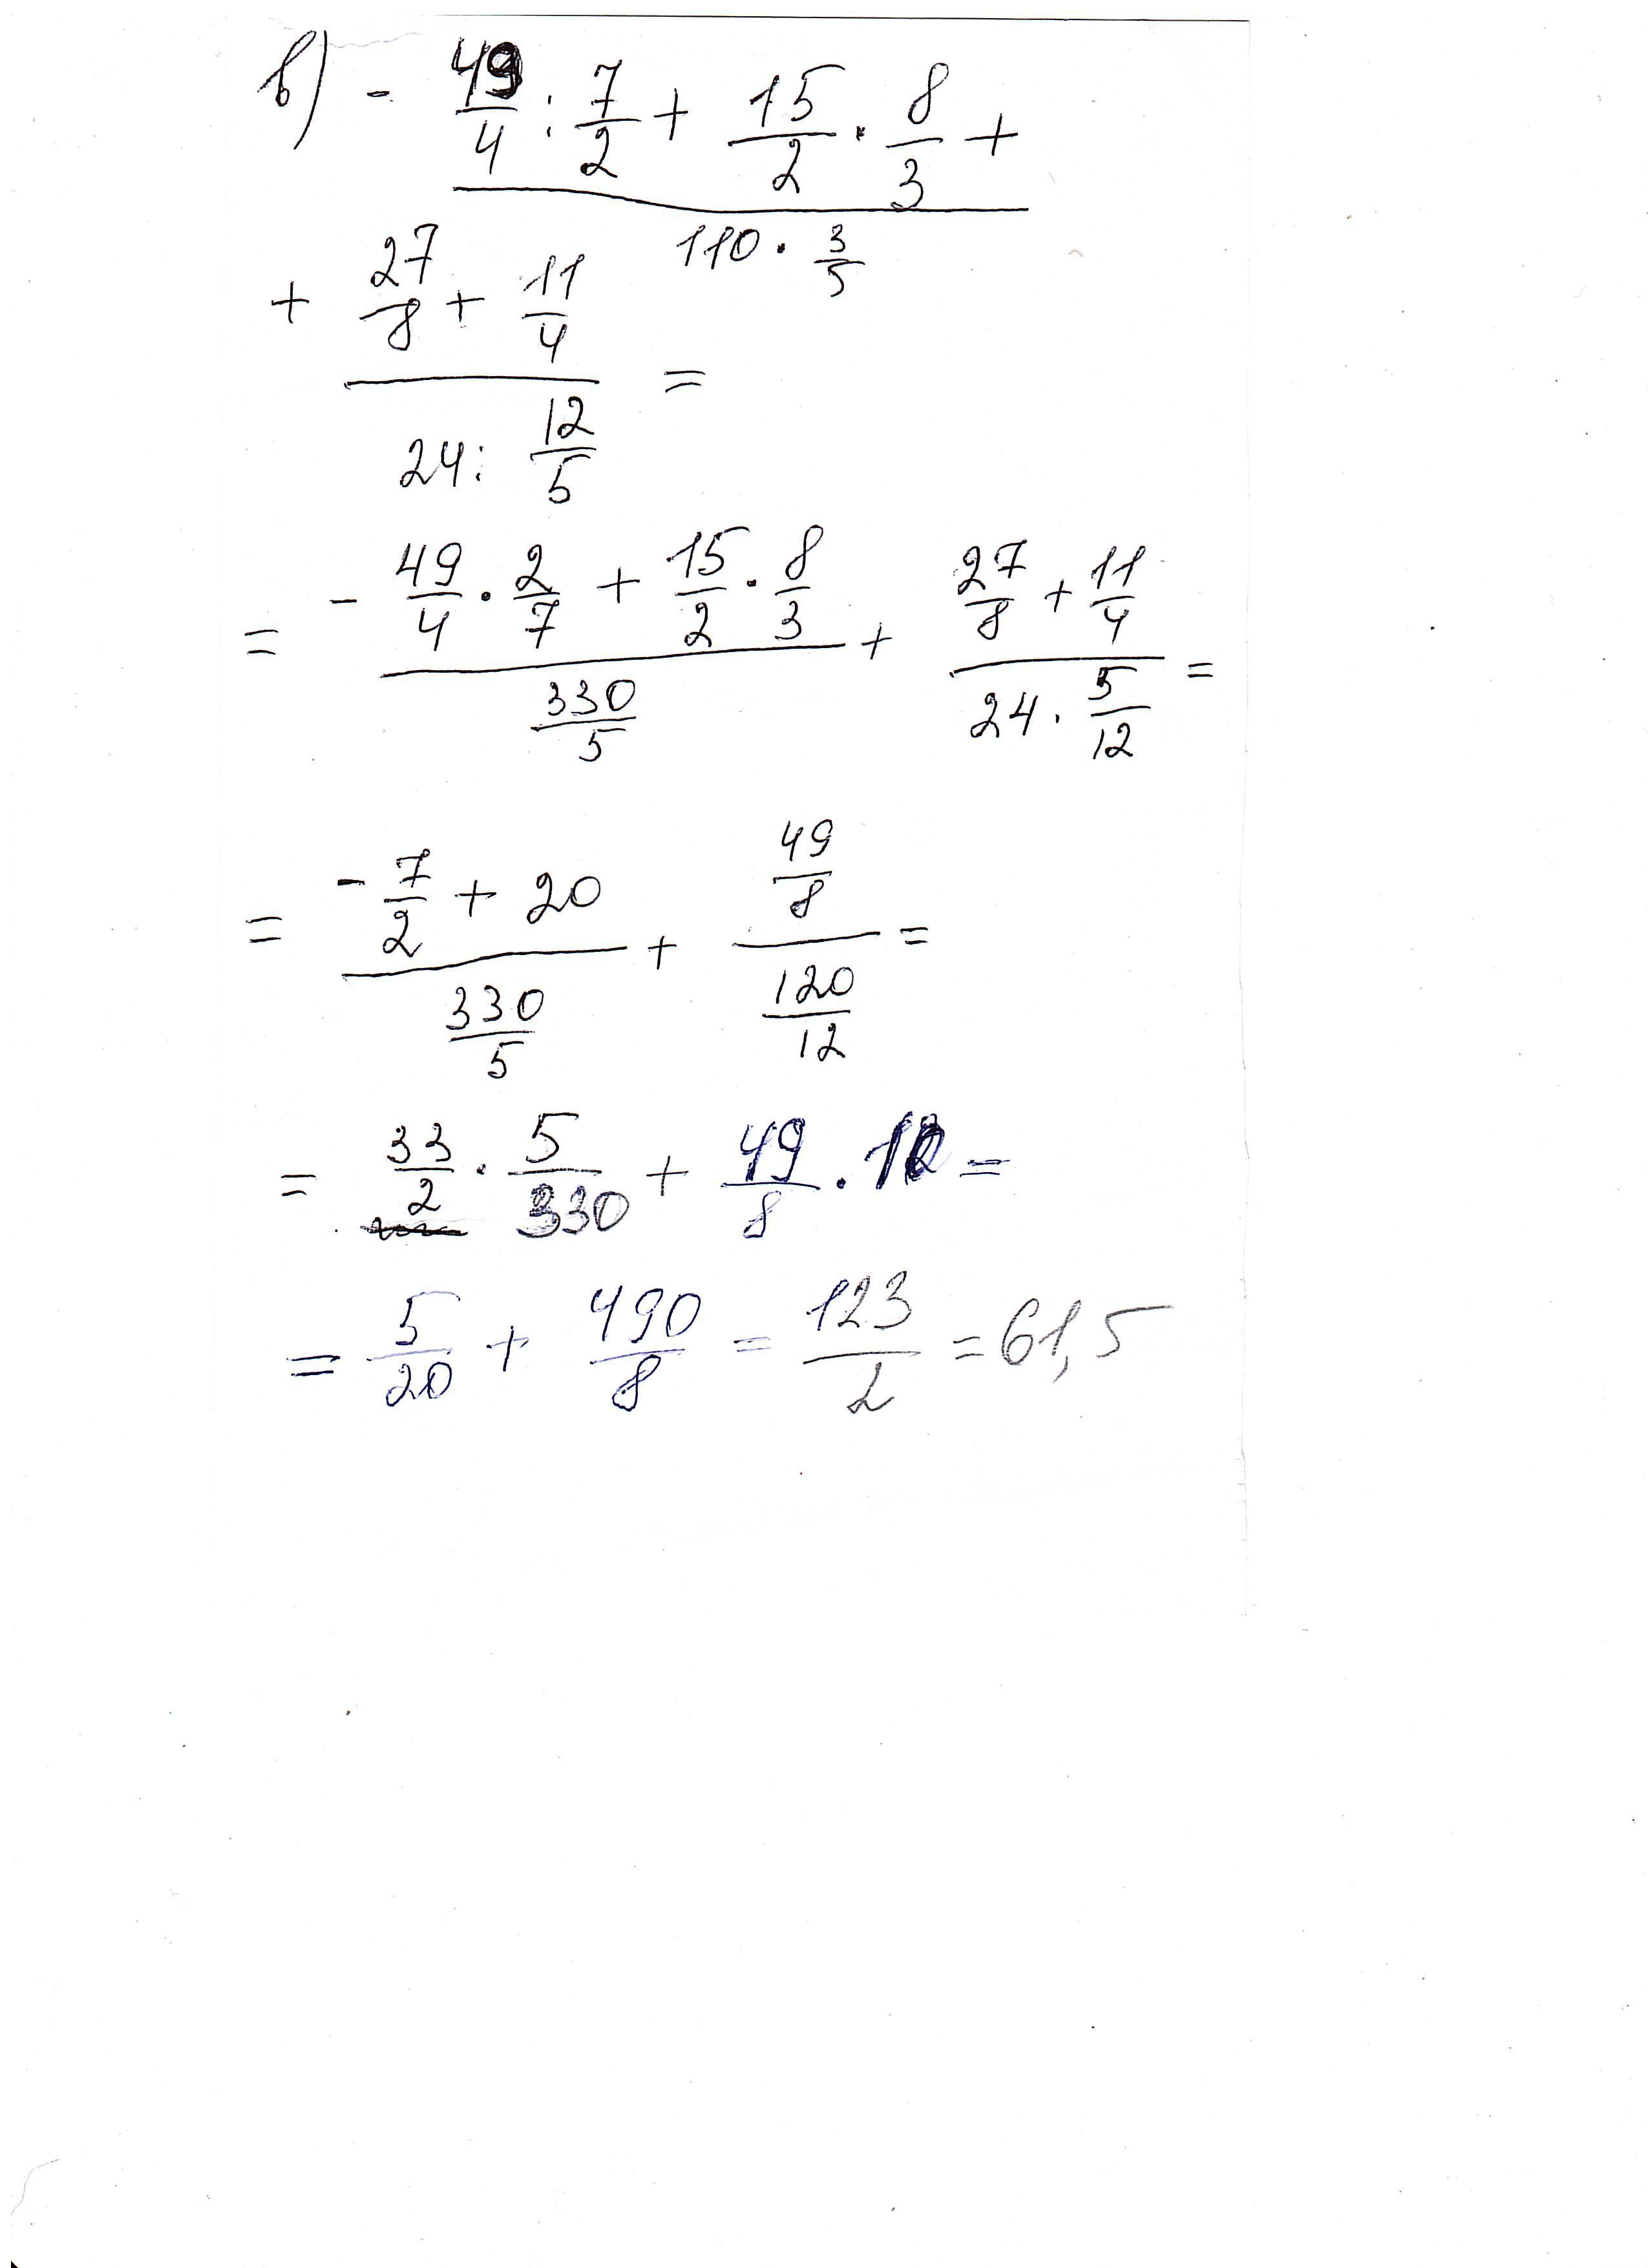 в) - 49/4 : 7/2 + 15/2 · 8/3 +
110 · 3/5
+ 27/8 + 11/4
24 : 12/5 =
= - 49/4 · 2/7 + 15/2 · 8/3 / 330/5 + 27/8 + 11/4 / 24 · 5/12 =
= - 7/2 + 20 / 330/5 + 49/8 / 120/12 =
= 33/2 · 5/330 + 49/8 · 10 =
= 5/20 + 490/8 = 123/2 = 61,5